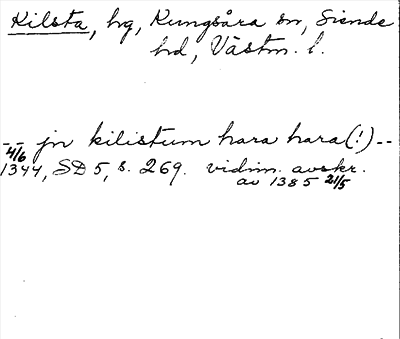 Kilsta, hg, Kungsåra sn, Siende
hd, Västm. l.
-- jn kilistum hara hara (!) --
4/6
1344, SD 5, s. 269. vidim. avskr.
av 1385 21/5